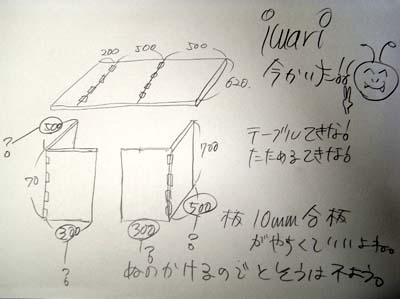 iwari
今かいた!!
200 500 500
620
テーブルできな!
たためるできな!
500
?
70
300
?
700
300
?
500
?
板 10mm 合板
がやすくていいよね。
ぬのかけるのでとそうは不よう。